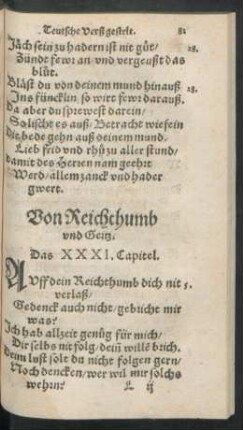 Teutsche Verß gestelt. 81
Jäch sein zu hadern ist nit gůt/ 28.
Zündt fewr an vnd vergeußt das
blůt.
Bläst du von deinem mund hinauß 28.
Ins füncklin, so wirt fewr darauß.
Da aber du spiewest darein/
So lischt es auß/ Betracht wie fein
Die bede gehn auß deinem mund.
Lieb frid vnd rhů zu aller stund/
damit des Herren nam geehrt
Werd/ allem zanck vnd hader
gwert.
Von Reichthumb
vnd Geitz.
Das XXXI. Capitel.
AVff dein Reichthumb dich nit 5.
verlaß/
Gedenck auch nicht/ gebricht mir
was?
Ich hab allzeit genůg für mich/
Dir selbs nit folg/ deiñ willẽ brich.
Deim lust solt du nicht folgen gern/
Noch dencken/ wer wil mir solchs
wehrn?
L ij